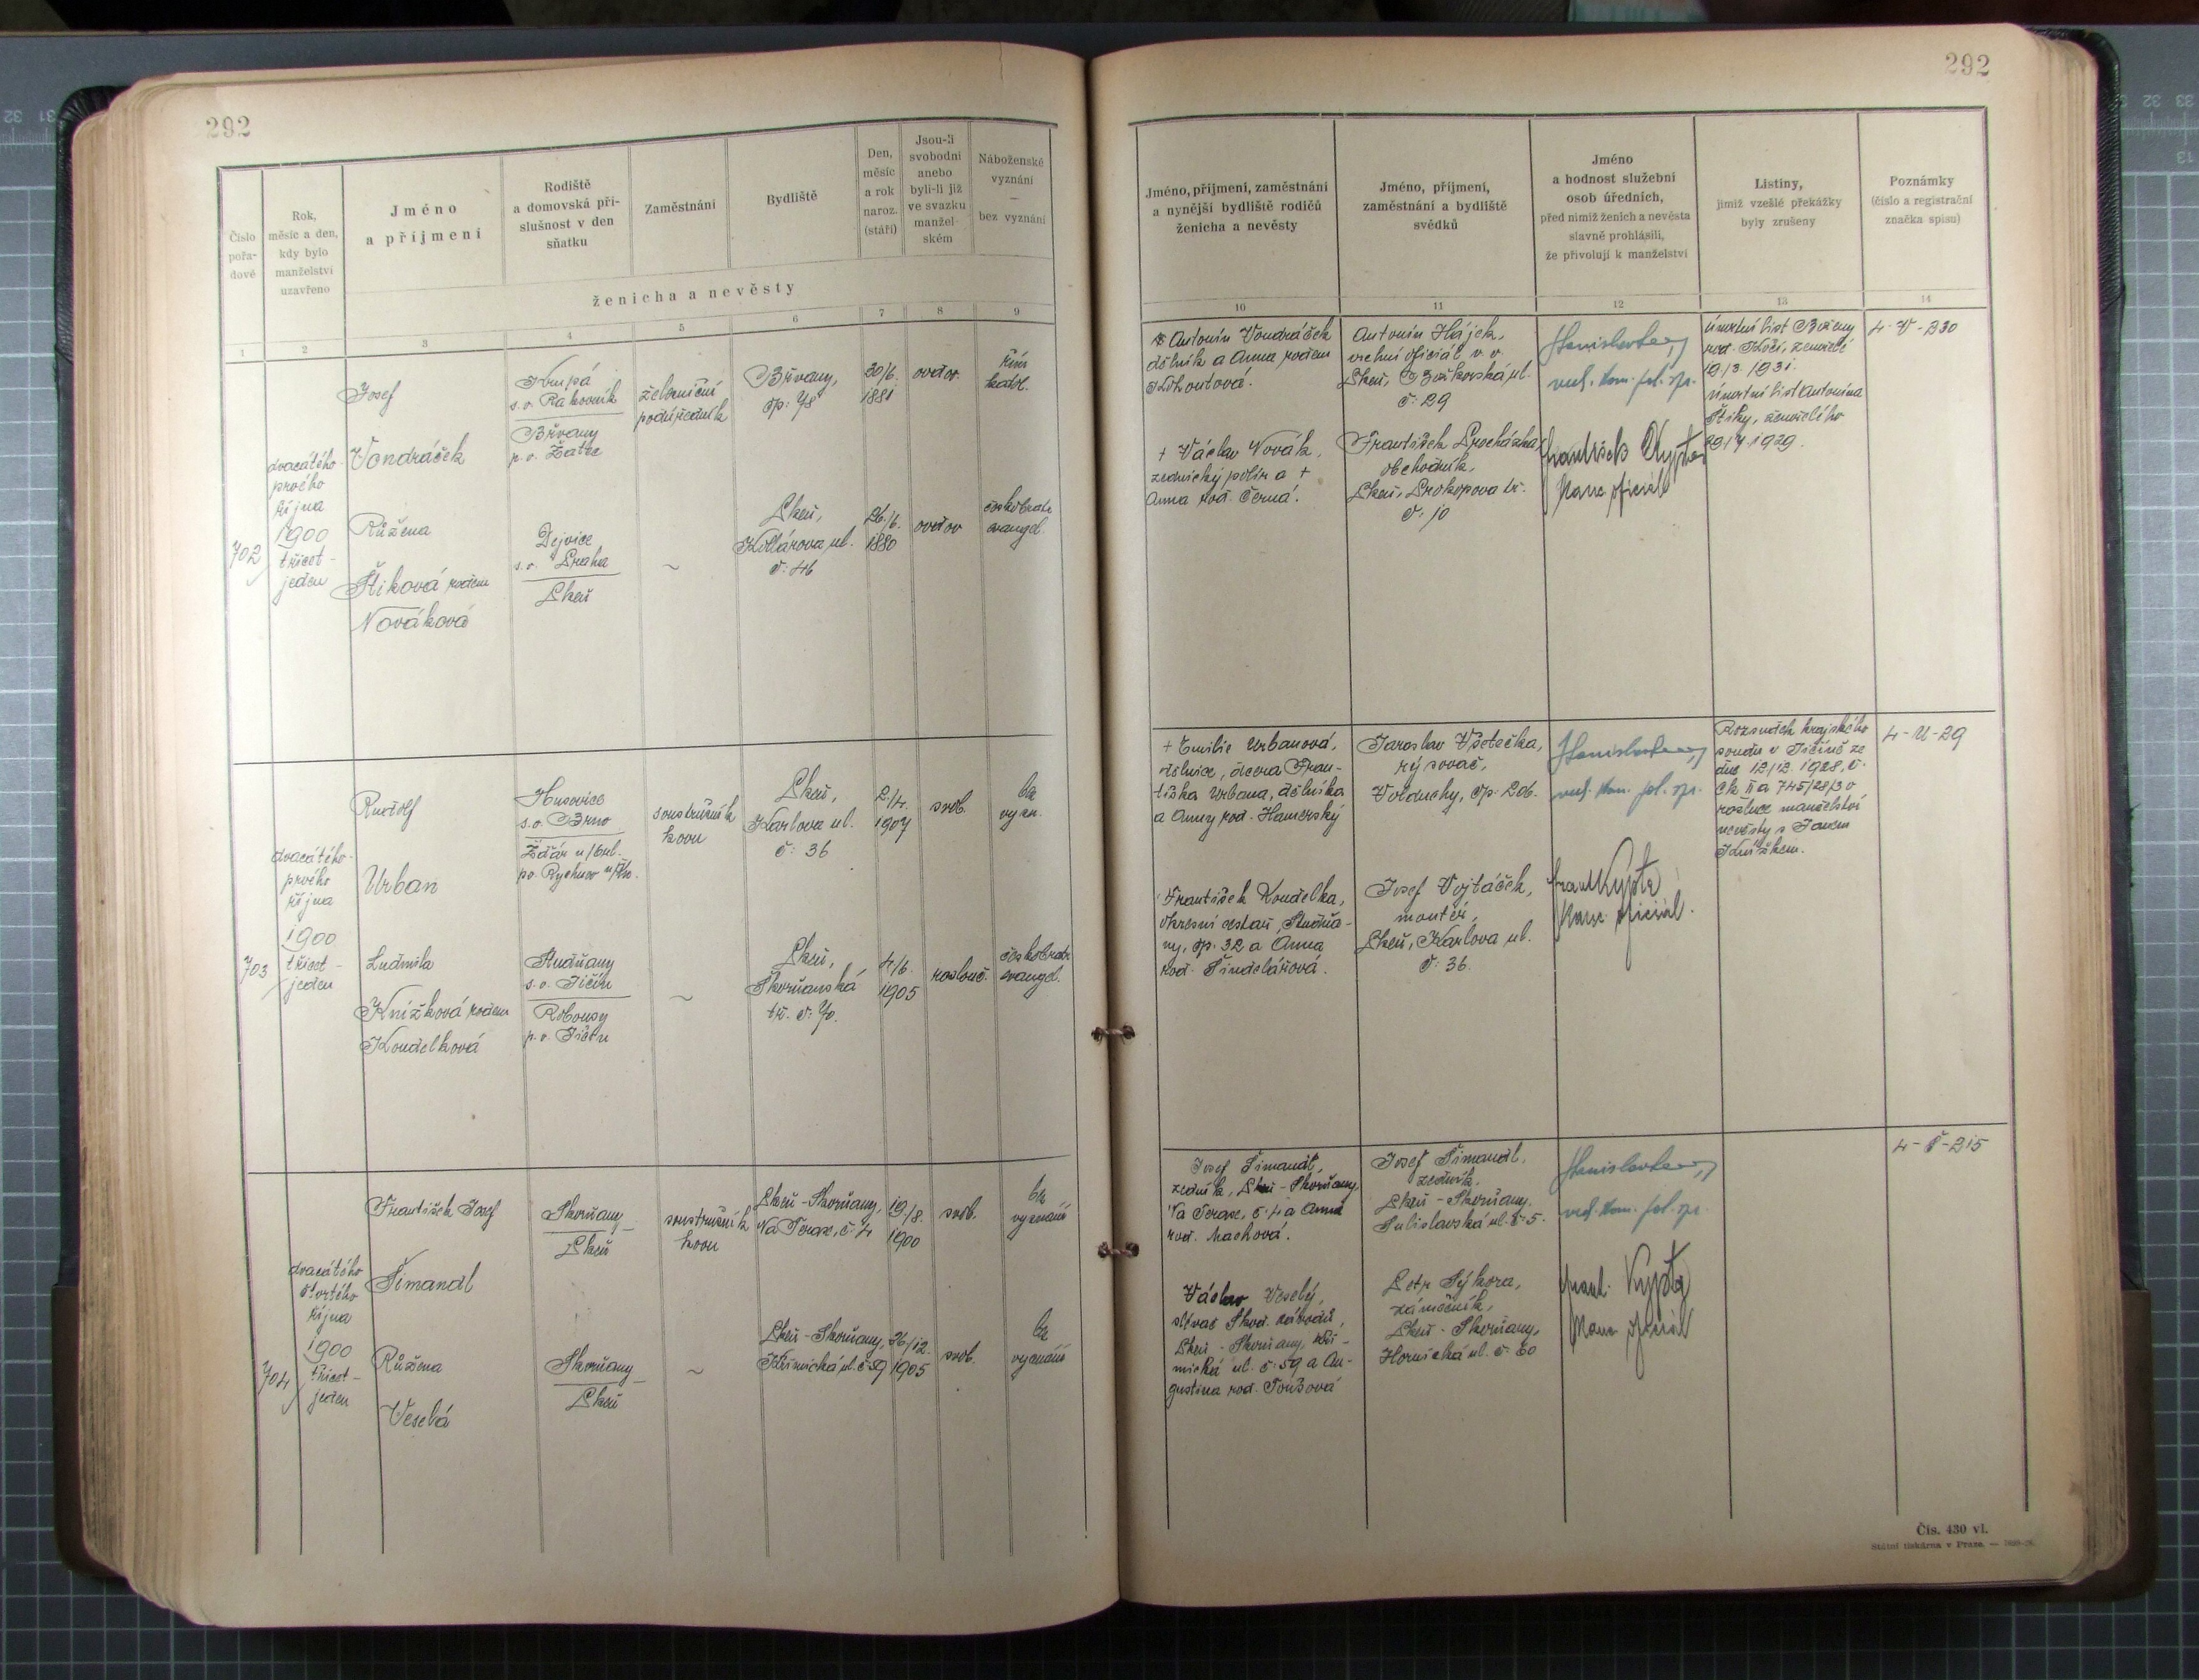 292
292
Číslo
pořa-
dové
Rok,
měsíc a den,
kdy bylo
manželství
uzavřeno
Jméno
a příjmení
Rodiště
a domovská pří-
slušnost v den
sňatku
Zaměstnání
Bydliště
Den,
měsíc
a rok
naroz.
(stáří)
Jsou-li
svobodni
anebo
byli-li již
ve svazku
manžel-
ském
Náboženské
vyznání
—
bez vyznání
ženicha a nevěsty
1 2 3 4 5 6 7 8 9
702
dvacátého-
prvého
října
1900
třicet-
jeden
Josef
Vondráček
Krupá
s.o. Rakovník
Břvany
p.o. Žatec
železniční
podúředník
Břvany,
čp. 48
30/6.
1881
ovdov.
řím
katol.
Růžena
Štiková rodem
Nováková
Dejvice
s.o. Praha
Plzeň
~
Plzeň,
Kollárova ul.
č. 46
26/6.
1880
ovdov
českobratr
evangel.
703
dvacátého-
prvého
října
1900
třicet-
jeden
Rudolf
Urban
Husovice
s.o. Brno
Žďár
soustružník
kovu
Plzeň,
Karlova ul.
č. 36
2/4.
1907
svob.
bez
vyzn.
Ludmila
Knížková rodem
Koudelková
Studňany
s.o. Jičín
Robousy
p.o. Jičín
~
Plzeň,
Skvrňanská
tř. č. 70.
4/6.
1905
rozlouč.
českobratr
evangel.
704
dvacátého
čtvrtého
října
1900
třicet-
jeden
František Josef
Šimandl
Skvrňany
Plzeň
soustružník
kovu
Plzeň-Skvrňany,
Na Terase, č. 4
19/8.
1900
svob.
bez
vyznání
Růžena
Veselá
Skvrňany
Plzeň
~
Plzeň-Skvrňany,
Křimická ul. č. 59
26/12.
1905
svob.
bez
vyznání
Jméno, příjmení, zaměstnání
a nynější bydliště rodičů
ženicha a nevěsty
Jméno, příjmení,
zaměstnání a bydliště
svědků
Jméno
a hodnost služební
osob úředních,
před nimiž ženich a nevěsta
slavně prohlásili,
že přivolují k manželství
Listiny,
jimiž vzešlé překážky
byly zrušeny
Poznámky
(číslo a registrační
značka spisu)
10 11 12 13 14
Antonín Vondráček
dělník a Anna rodem
Kohoutová.
+ Václav Novák,
zednický polír a +
Anna rod. Černá.
Antonín Hájek,
vrchní oficiál v.v.
Plzeň, Božkovská ul.
č. 29
František Procházka
obchodník,
Plzeň, Prokopova tř.
č. 10
František Kypta
kanc. oficiál
úmrtní list Boženy
rod. Kočí, zemřelé
19/3. 1931.
úmrtní list Antonína
Štiky, zemřelého
29/7. 1929.
4-V-230
+ Emilie Urbanová,
dělnice, dcera Fran-
tiška Urbana, dělníka
a Anny rod. Hamerský
František Koudelka,
okresní cestář, Studňa-
ny, čp. 32 a Anna
rod. Šindelářová.
Jaroslav Všetečka,
rýsovač,
Volduchy, čp. 206.
Josef Vojtáček,
montér,
Plzeň, Karlova ul.
č. 36.
Frant Kypta
kanc. oficiál.
Rozsudek krajského
soudu v Jičíně ze
dne 12/12. 1928, č.
Ck II a 745/28/30
rozluce manželství
nevěsty s Janem
Knížkem.
4-U-29
Josef Šimandl,
zedník, Plzeň-Skvrňany,
Na Terase, č. 4 a Anna
rod. Machová.
Václav Veselý,
slévač Škod. závodů,
Plzeň-Skvrňany, Kři-
mická ul. č. 59 a Au-
gustina rod. Toušová
Josef Šimandl,
zedník.
Plzeň-Skvrňany,
Sulislavská ul. č. 5.
Petr Sýkora,
zámečník,
Plzeň-Skvrňany,
Hornická ul. č. 60
Frant. Kypta
kanc. oficiál
4-Š-215
Čís. 430 vl.
Státní tiskárna v Praze. —